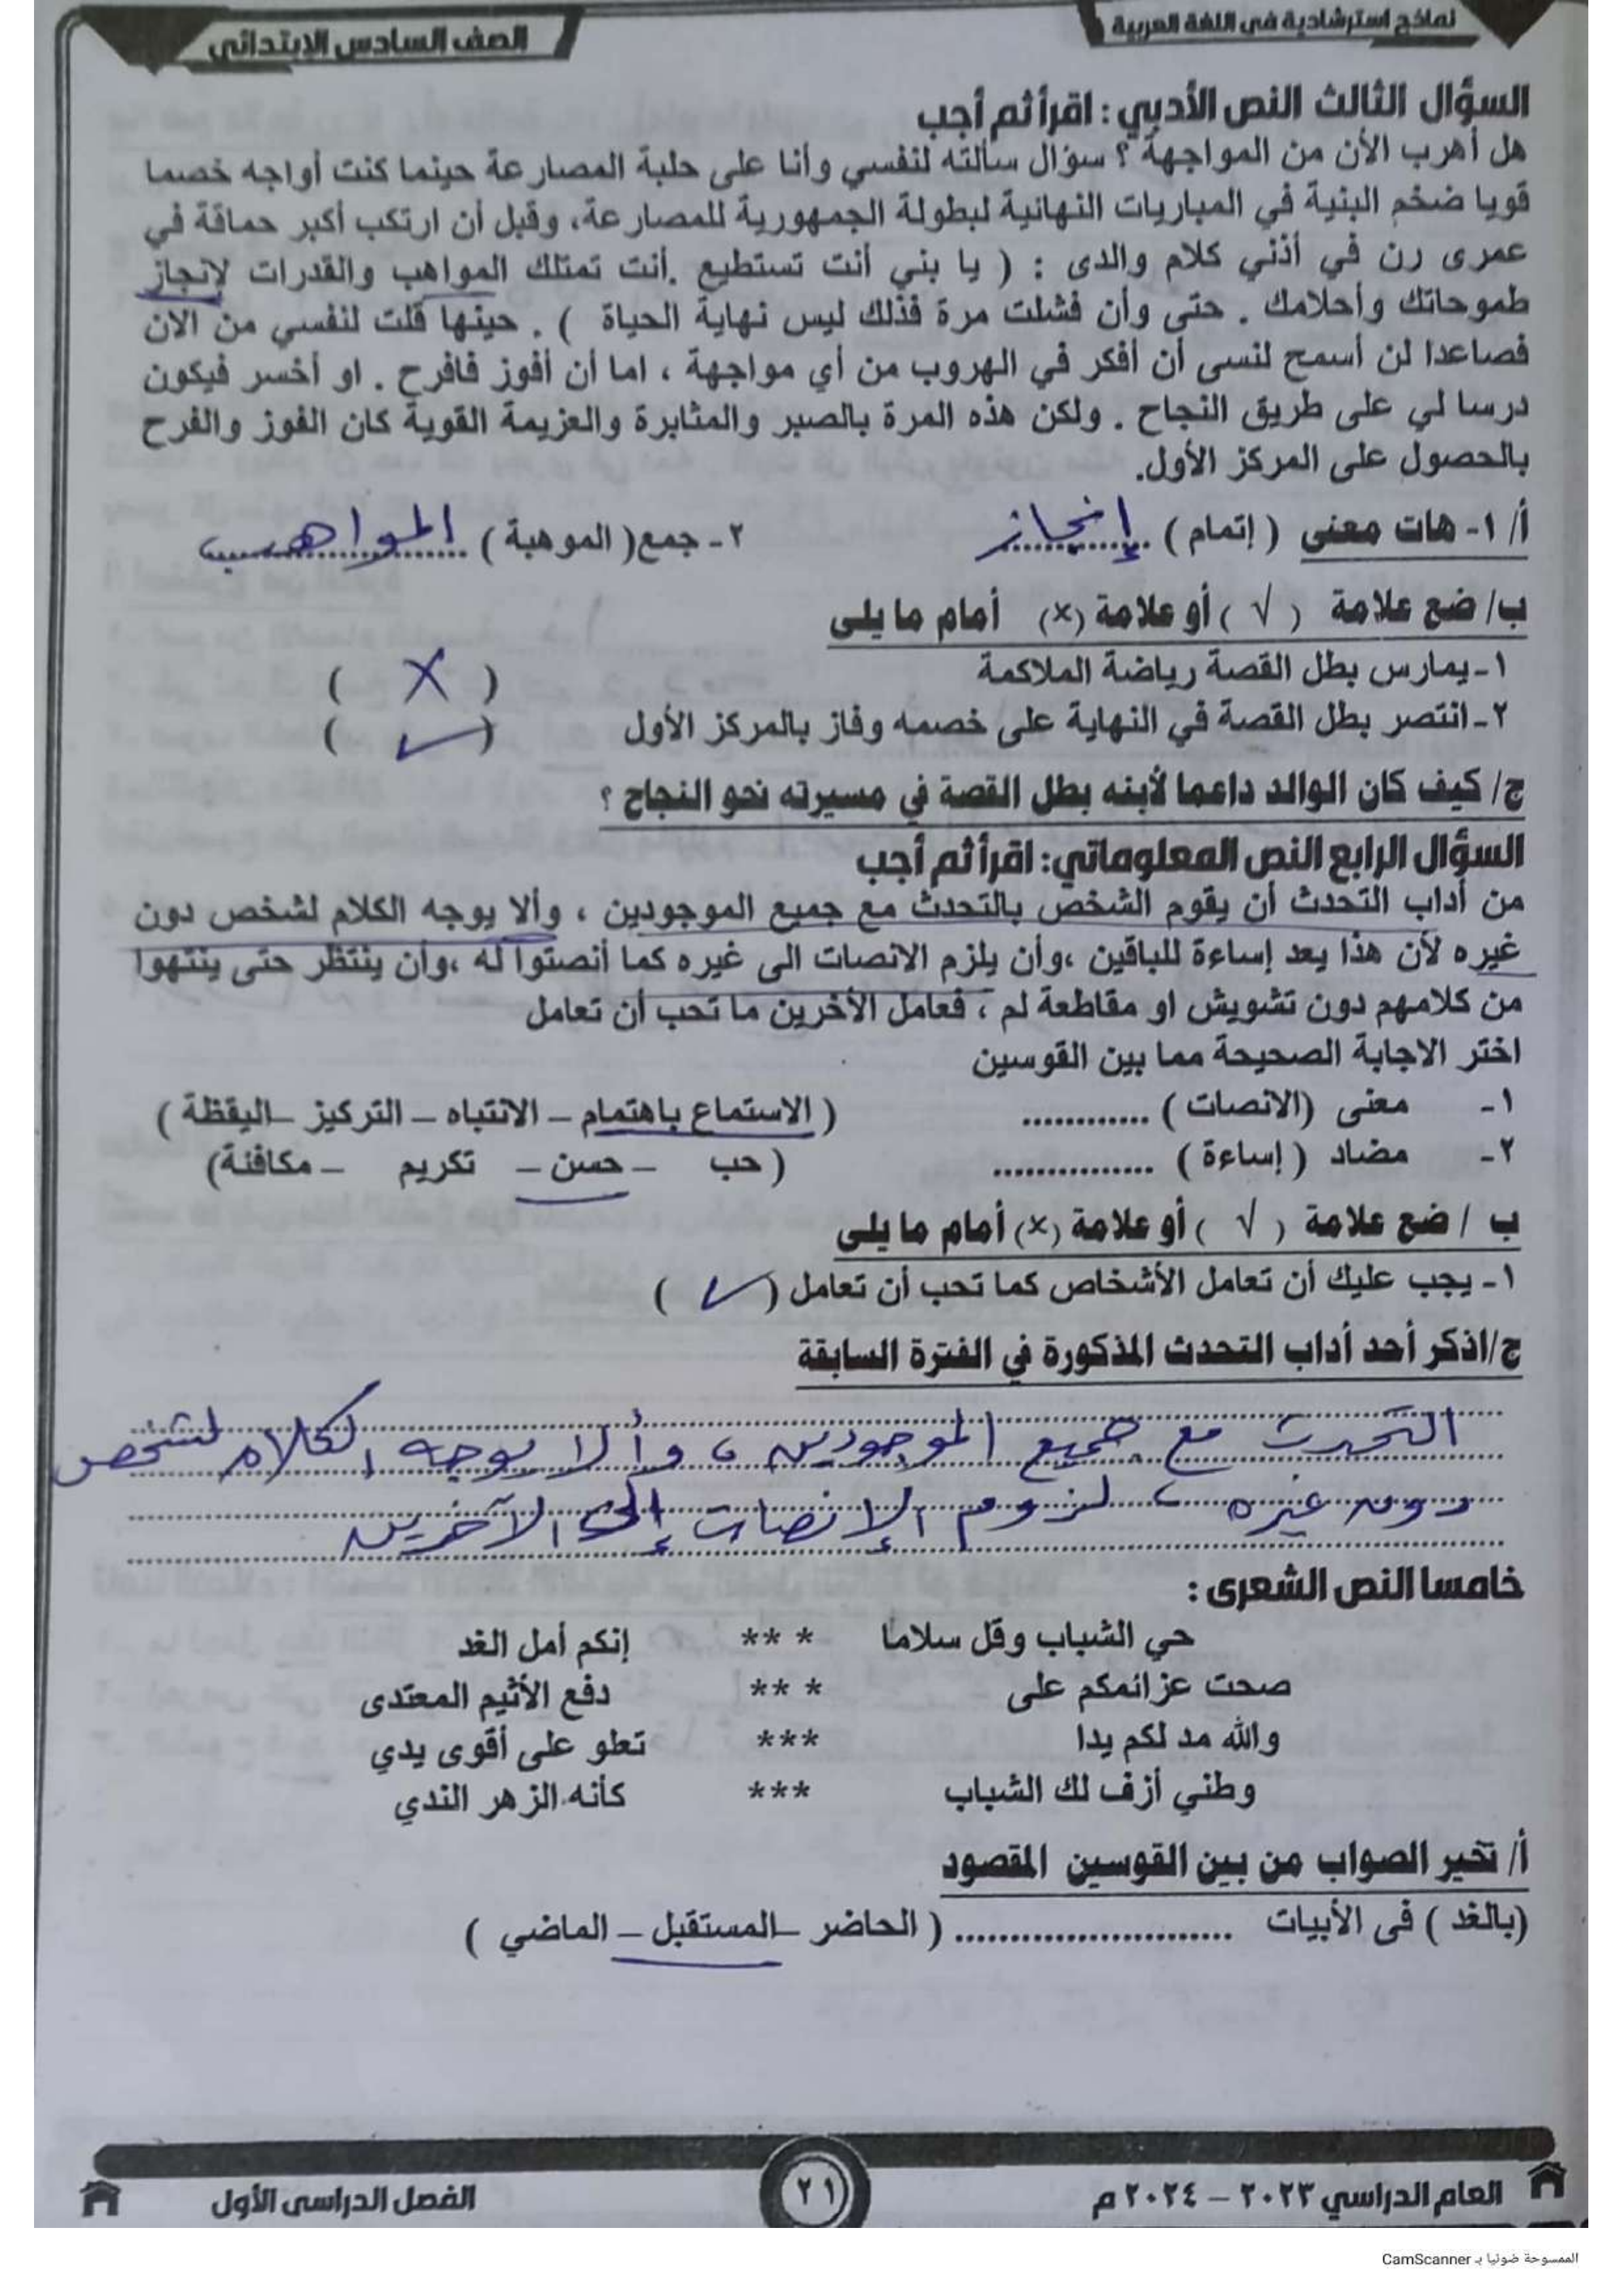 نماذج استرشادية في اللغة العربية
الصف السادس الابتدائي
السؤال الثالث النص الأدبي : اقرأ ثم أجب
هل أهرب الأن من المواجهة ؟ سؤال سألته لنفسي وأنا على حلبة المصارعة حينما كنت أواجه خصما
قويا ضخم البنية في المباريات النهائية لبطولة الجمهورية للمصارعة، وقبل أن ارتكب أكبر حماقة في
عمرى رن في أذني كلام والدى : ( يا بني أنت تستطيع .أنت تمتلك المواهب والقدرات لانجاز
طموحاتك وأحلامك . حتى وأن فشلت مرة فذلك ليس نهاية الحياة ) . حينها قلت لنفسي من الان
فصاعدا لن أسمح لنسى أن أفكر في الهروب من أي مواجهة ، اما أن أفوز فافرح . او أخسر فيكون
درسا لي على طريق النجاح . ولكن هذه المرة بالصبر والمثابرة والعزيمة القوية كان الفوز والفرح
بالحصول على المركز الأول.
أ/ ١- هات معنى ( إتمام ) إنجاز ٢- جمع( الموهبة ) المواهب
ب/ ضع علامة ( √ ) أو علامة (×) أمام ما يلى
١- يمارس بطل القصة رياضة الملاكمة ( X )
٢- انتصر بطل القصة في النهاية على خصمه وفاز بالمركز الأول ( ✓ )
ج/ كيف كان الوالد داعما لأبنه بطل القصة في مسيرته نحو النجاح ؟
السؤال الرابع النص المعلوماتي: اقرأ ثم أجب
من أداب التحدث أن يقوم الشخص بالتحدث مع جميع الموجودين ، وألا يوجه الكلام لشخص دون
غيره لأن هذا يعد إساءة للباقين ،وأن يلزم الانصات الى غيره كما أنصتوا له ،وأن ينتظر حتى ينتهوا
من كلامهم دون تشويش او مقاطعة لم ، فعامل الأخرين ما تحب أن تعامل
اختر الاجابة الصحيحة مما بين القوسين
١- معنى (الانصات ) ............ ( الاستماع باهتمام – الانتباه – التركيز –اليقظة )
٢- مضاد ( إساءة ) ............... ( حب – حسن – تكريم – مكافئة)
ب / ضع علامة ( √ ) أو علامة (×) أمام ما يلى
١- يجب عليك أن تعامل الأشخاص كما تحب أن تعامل ( ✓ )
ج/اذكر أحد أداب التحدث المذكورة في الفترة السابقة
التحدث مع جميع الموجودين ، وألا يوجه الكلام لشخص
دون غيره ، لزوم الإنصات إلى الآخرين
خامسا النص الشعرى :
حي الشباب وقل سلاما *** إنكم أمل الغد
صحت عزائمكم على *** دفع الأثيم المعتدى
والله مد لكم يدا *** تعلو على أقوى يدي
وطني أزف لك الشباب *** كأنه الزهر الندي
أ/ تخير الصواب من بين القوسين المقصود
(بالغد ) فى الأبيات .......................... ( الحاضر –المستقبل – الماضي )
العام الدراسي ٢٠٢٣ – ٢٠٢٤ م
٢١
الفصل الدراسى الأول
الممسوحة ضوئيا بـ CamScanner